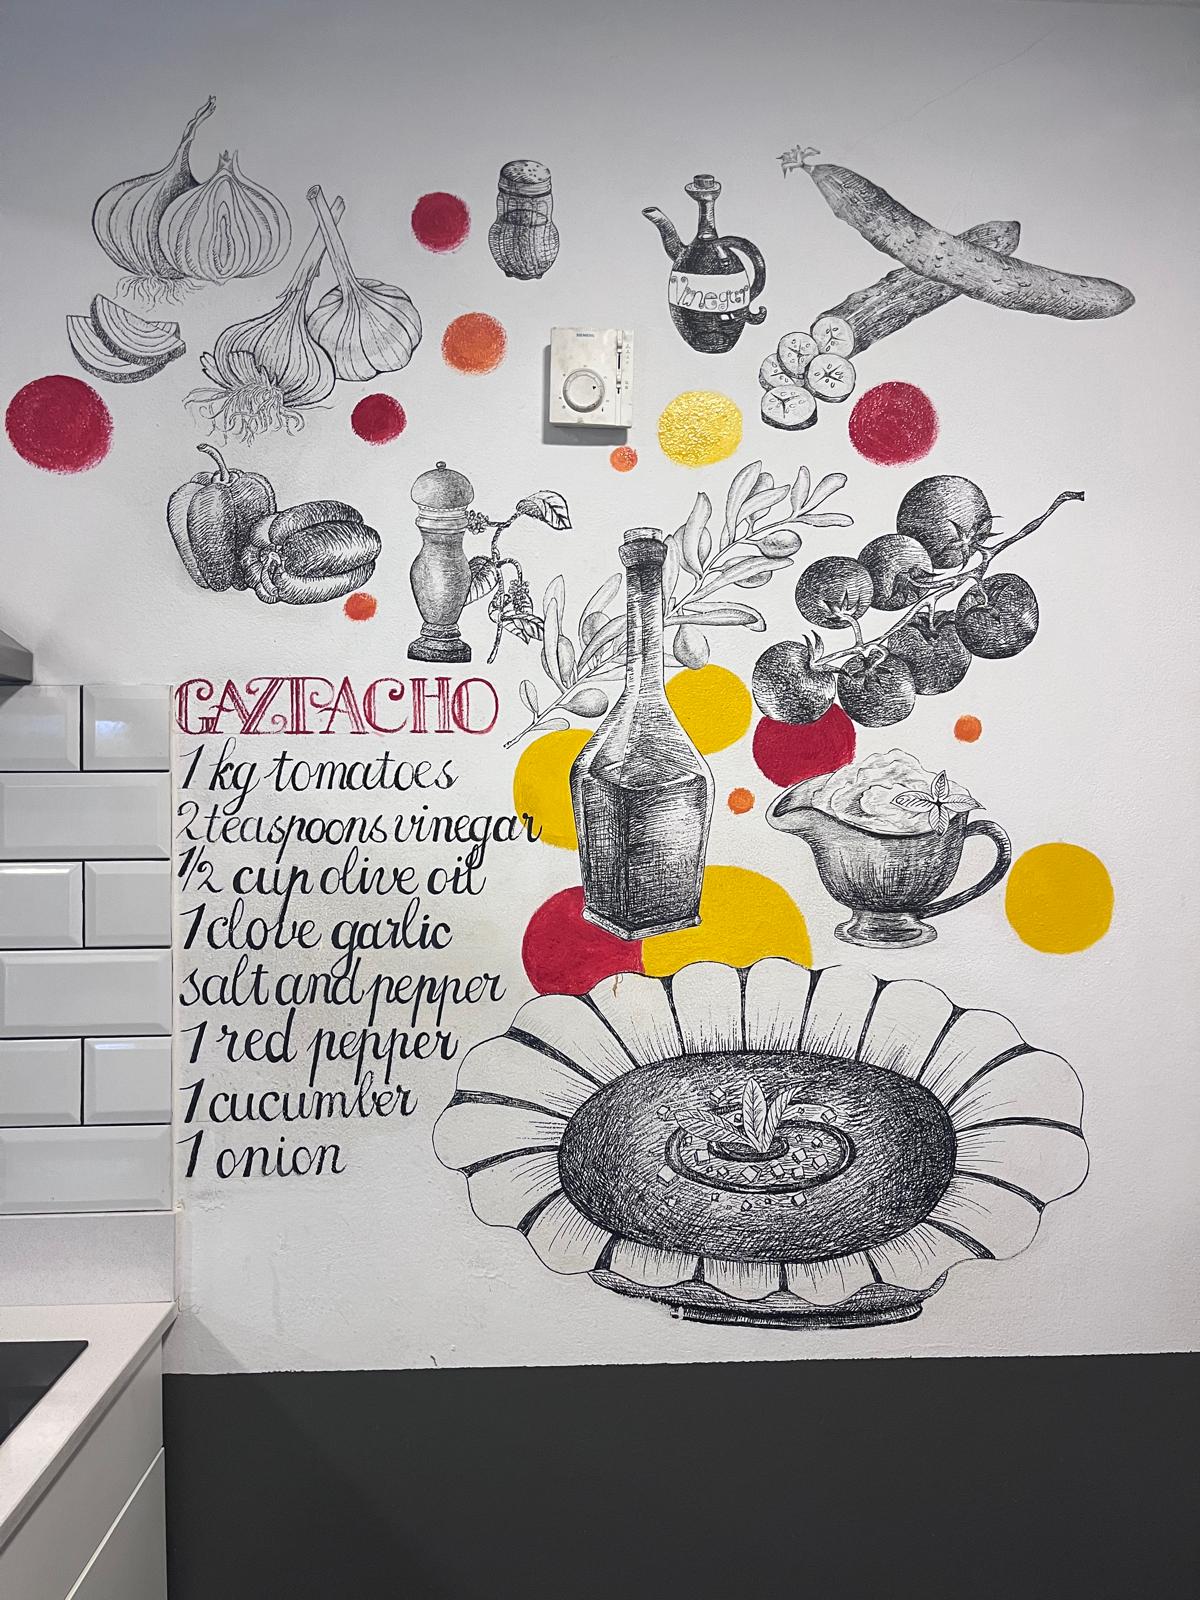 SIEMENS
Vinegar
GAZPACHO
1 kg tomatoes
2 teaspoons vinegar
1/2 cup olive oil
1 clove garlic
salt and pepper
1 red pepper
1 cucumber
1 onion